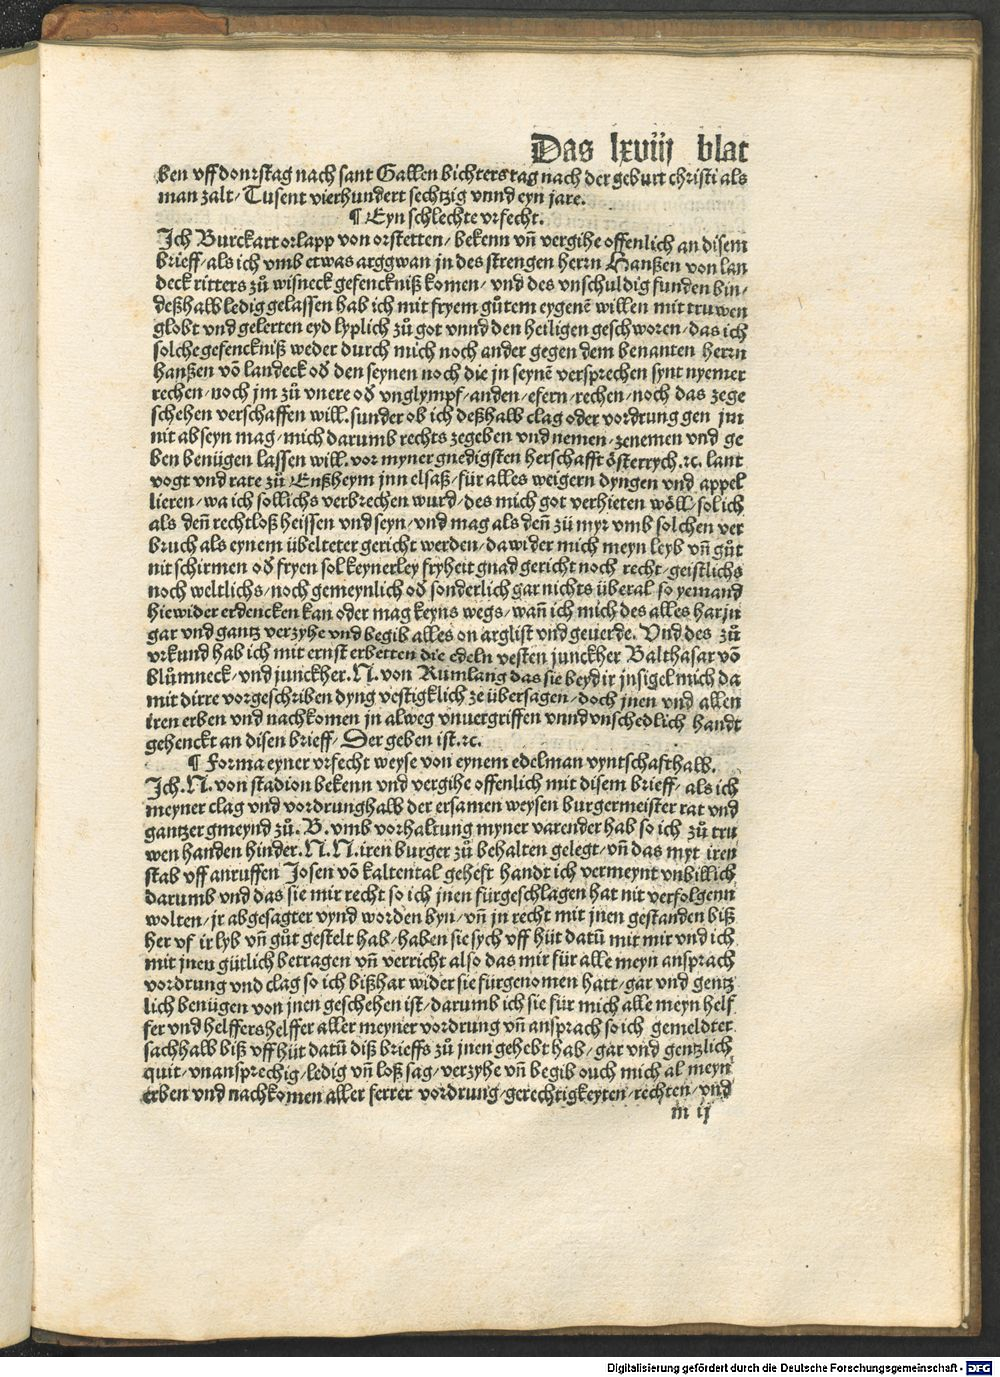 Das lxviij blat
ben vff donrstag nach sant Gallen bichters tag nach der geburt christi als
man zalt / Tusent vierhundert sechtzig vnnd eyn jare.
¶ Eyn schlechte vrfecht.
Ich Burckart orlapp von orstetten / bekenn vn̄ vergihe offenlich an disem
brieff / als ich vmb etwas arggwan jn des strengen herrn Hanßen von lan
deck ritters zů wisneck gefenckniß komen / vnd des vnschuldig funden bin /
deßhalb ledig gelassen hab ich mit fryem gůtem eygenē willen mit truwen
globt vnd gelerten eyd lyplich zů got vnnd den heiligen geschworen / das ich
solche gefenckniß weder durch mich noch ander gegen dem benanten herrn
hanßen vō landeck od̄ den seynen noch die jn seynē versprechen synt nyemer
rechen / noch jm zů vnere od̄ vnglympf / anden / efern / rechen / noch das zege
schehen verschaffen will. sunder ob ich deßhalb clag oder vordrung gen jm
nit abseyn mag / mich darumb rechts zegeben vnd nemen / zenemen vnd ge
ben benügen lassen will. vor myner gnedigsten herschafft österrych. ꝛc. lant
vogt vnd rate zů Enßheym jnn elsaß / für alles weigern dyngen vnd appel
lieren / wa ich sollichs verbrechen wurd / des mich got verhieten wöll / sol ich
als den̄ rechtloß heissen vnd seyn / vnd mag als den̄ zů myr vmb solchen ver
bruch als eynem übelteter gericht werden / da wider mich meyn leyb vn̄ gůt
nit schirmen od̄ fryen sol keynerley fryheit gnad gericht noch recht / geistlichs
noch weltlichs / noch gemeynlich od̄ sonderlich gar nichts überal so yemand
hiewider erdencken kan oder mag keyns wegs / wan̄ ich mich des alles harjn
gar vnd gantz verzyhe vnd begib alles on arglist vnd geuerde. Vnd des zů
vrkund hab ich mit ernst erbetten die edeln vesten junckher Balthasar vō
blůmneck / vnd junckher. N. von Rumlang das sie beyd ir jnsigel mich da
mit dirre vorgeschriben dyng vestigklich ze übersagen / doch jnen vnd allen
iren erben vnd nachkomen jn alweg vnuergriffen vnnd vnschedlich handt
gehenckt an disen brieff / Der geben ist. ꝛc.
¶ Forma eyner vrfecht weyse von eynem edelman vyntschafthalb.
Ich. N. von stadion bekenn vnd vergihe offenlich mit disem brieff / als ich
meyner clag vnd vordrunghalb der ersamen weysen burgermeister rat vnd
gantzer gmeynd zů. B. vmb vorhaltung myner varender hab so ich zů tru
wen handen hinder. N. N. iren burger zů behalten gelegt / vn̄ das myt iren
stab vff anruffen Josen vō kaltental geheft handt ich vermeynt vnbillich
darumb vnd das sie mir recht so ich jnen fürgeschlagen hat nit verfolgenn
wolten / jr abgesagter vynd worden byn / vn̄ jn recht mit jnen gestanden biß
her vf ir lyb vn̄ gůt gestelt hab / haben sie sych vff hüt datū mit mir vnd ich
mit jnen gütlich betragen vn̄ verricht also das mir für alle meyn ansprach
vordrung vnd clag so ich bißhar wider sie fürgenomen hatt / gar vnd gentz
lich benügen von jnen geschehen ist / darumb ich sie für mich alle meyn helf
fer vnd helffershelffer aller meyner vordrung vn̄ ansprach so ich gemeldter
sachhalb biß vff hüt datū diß brieffs zů jnen gehebt hab / gar vnd gentzlich
quit / vnansprechig / ledig vn̄ loß sag / verzyhe vn̄ begib ouch mich al meyn
erben vnd nachkomen aller ferrer vordrung / gerechtigkeyten / rechten / vnd
m ij
Digitalisierung gefördert durch die Deutsche Forschungsgemeinschaft - DFG